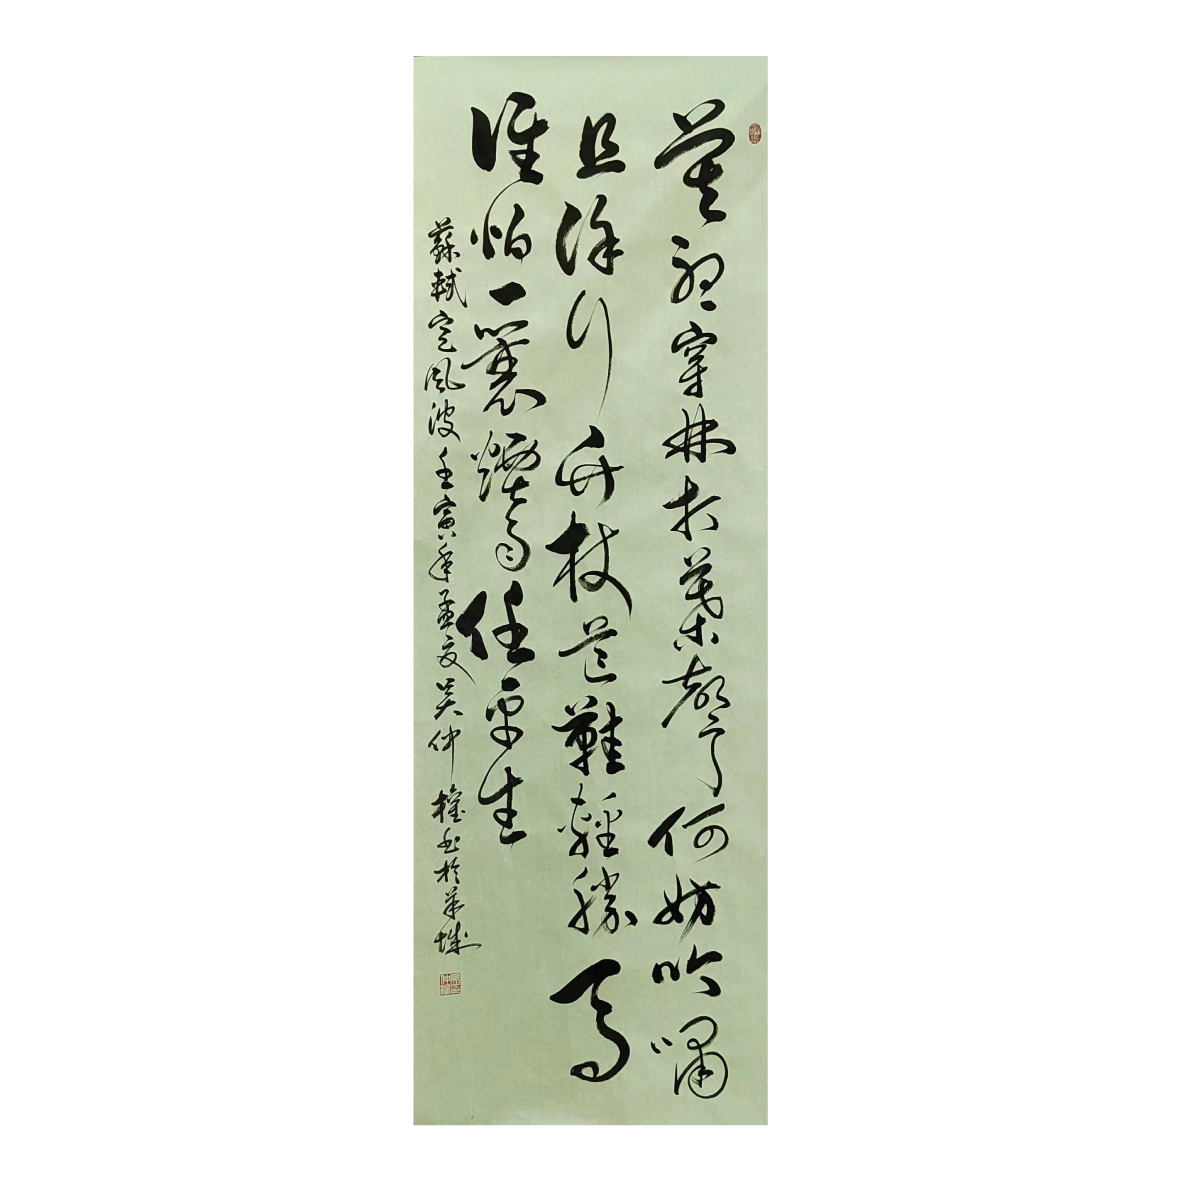 莫聽穿林打葉聲何妨吟嘯
且徐行竹杖芒鞋輕勝馬
誰怕一蓑煙雨任平生
蘇軾定風波壬寅年孟夏吳仲權書於羊城